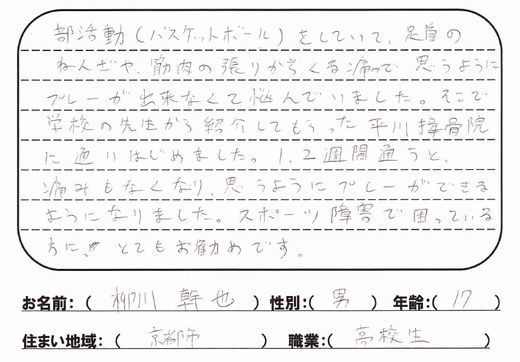 部活動(バスケットボール)をしていて、足首の
ねんざや、筋肉の張りからくる痛みで思うように
プレーが出来なくて悩んでいました。そこで
学校の先生から紹介してもらった平川接骨院
に通いはじめました。1、2週間通うと、
痛みもなくなり、思うようにプレーができる
ようになりました。スポーツ障害で困っている
方に!!とてもお勧めです。
お名前:( 柳川 幹也 ) 性別:( 男 ) 年齢:( 17 )
住まい地域:( 京都市 ) 職業:( 高校生 )